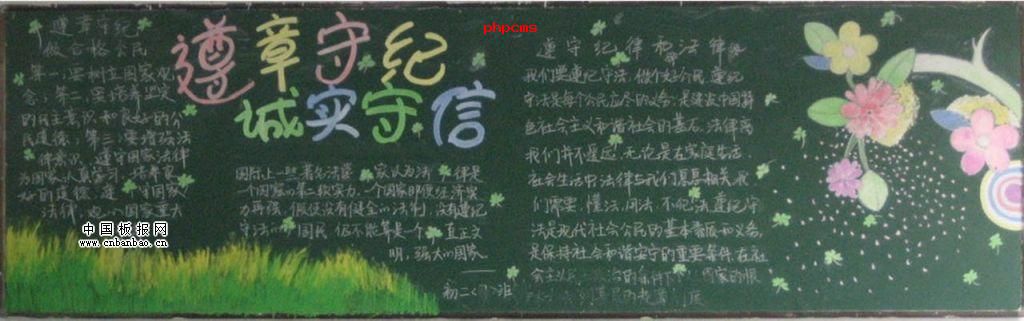 phpcms
遵章守纪
诚实守信
遵章守纪
做合格公民
第一:要树立国家观
念,第二:要培养坚定
的民主意识和良好的公
民道德,第三:要增强法
律意识,遵守国家法律
为国家认真学习,培养良
好的道德
法律
国际上一些著名法学家认为法律是
一个国家的第二软实力,一个国家即便经济实
力再强,假使没有健全的法制,没有遵纪
守法的国民,但不能算是一个真正文
明,强大的国家
初二〈 〉班
遵守纪律和法律
我们要遵纪守法,做个好公民,遵纪
守法是每个公民应尽的义务,是建设中国特
色社会主义和谐社会的基石,法律离
我们并不遥远,无论是在家庭生活
社会生活中,法律与我们息息相关,我
们需要,懂法,用法,不犯法,遵纪守
法是现代社会公民的基本素质和义务,
是保持社会和谐安宁的重要条件,在社
会主义 的条件下
中国板报网
www.cnbanbao.cn